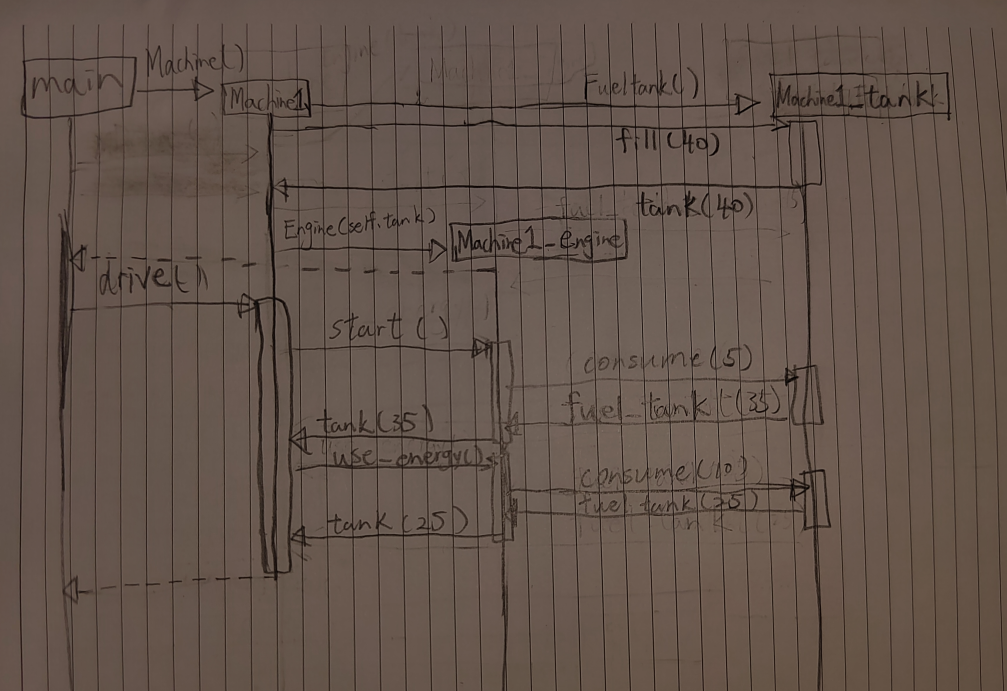 main
Machine()
Machine1
Fueltank()
Machine1_tank
fill(40)
tank(40)
Engine(self.tank)
Machine1_engine
drive()
start()
consume(5)
fuel_tank t(35)
tank(35)
use_energy()
consume(10)
fuel tank(25)
tank(25)